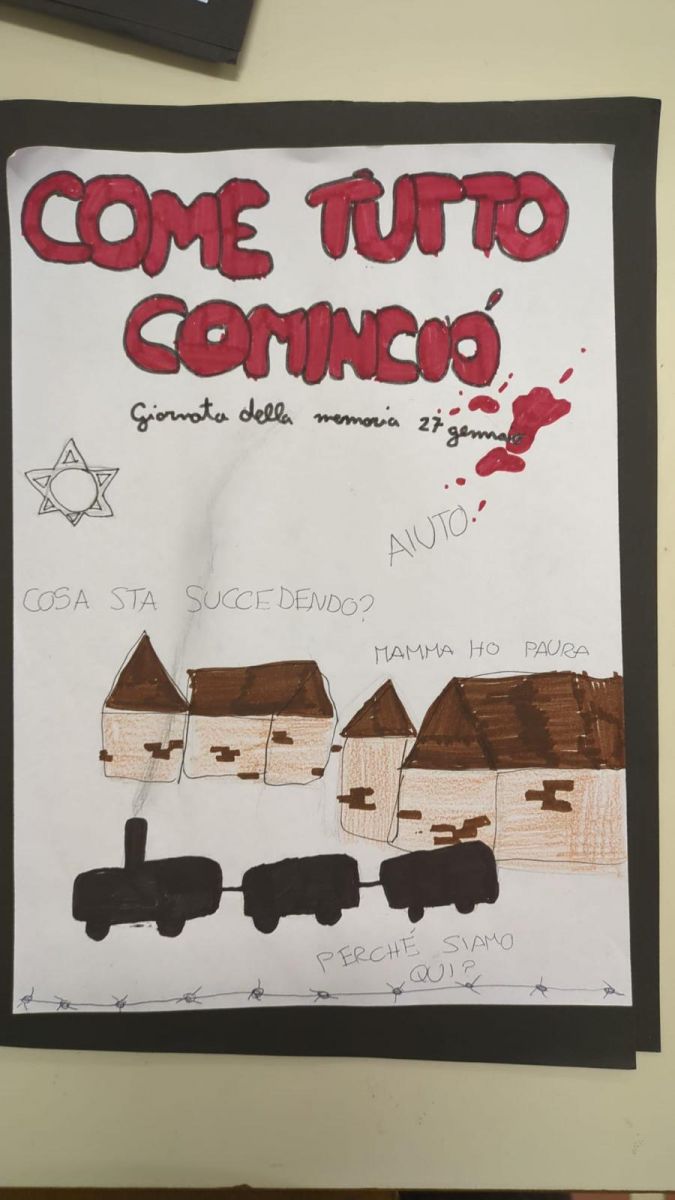 COME TUTTO
COMINCIÓ
Giornata della memoria 27 gennaio
AIUTO
COSA STA SUCCEDENDO?
MAMMA HO PAURA
PERCHÉ SIAMO
QUI?